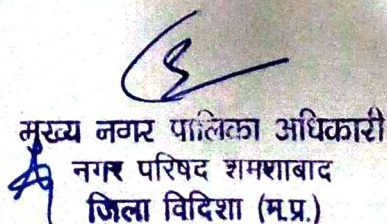 मुख्य नगर पालिका अधिकारी
नगर परिषद शमशाबाद
जिला विदिशा (म.प्र.)